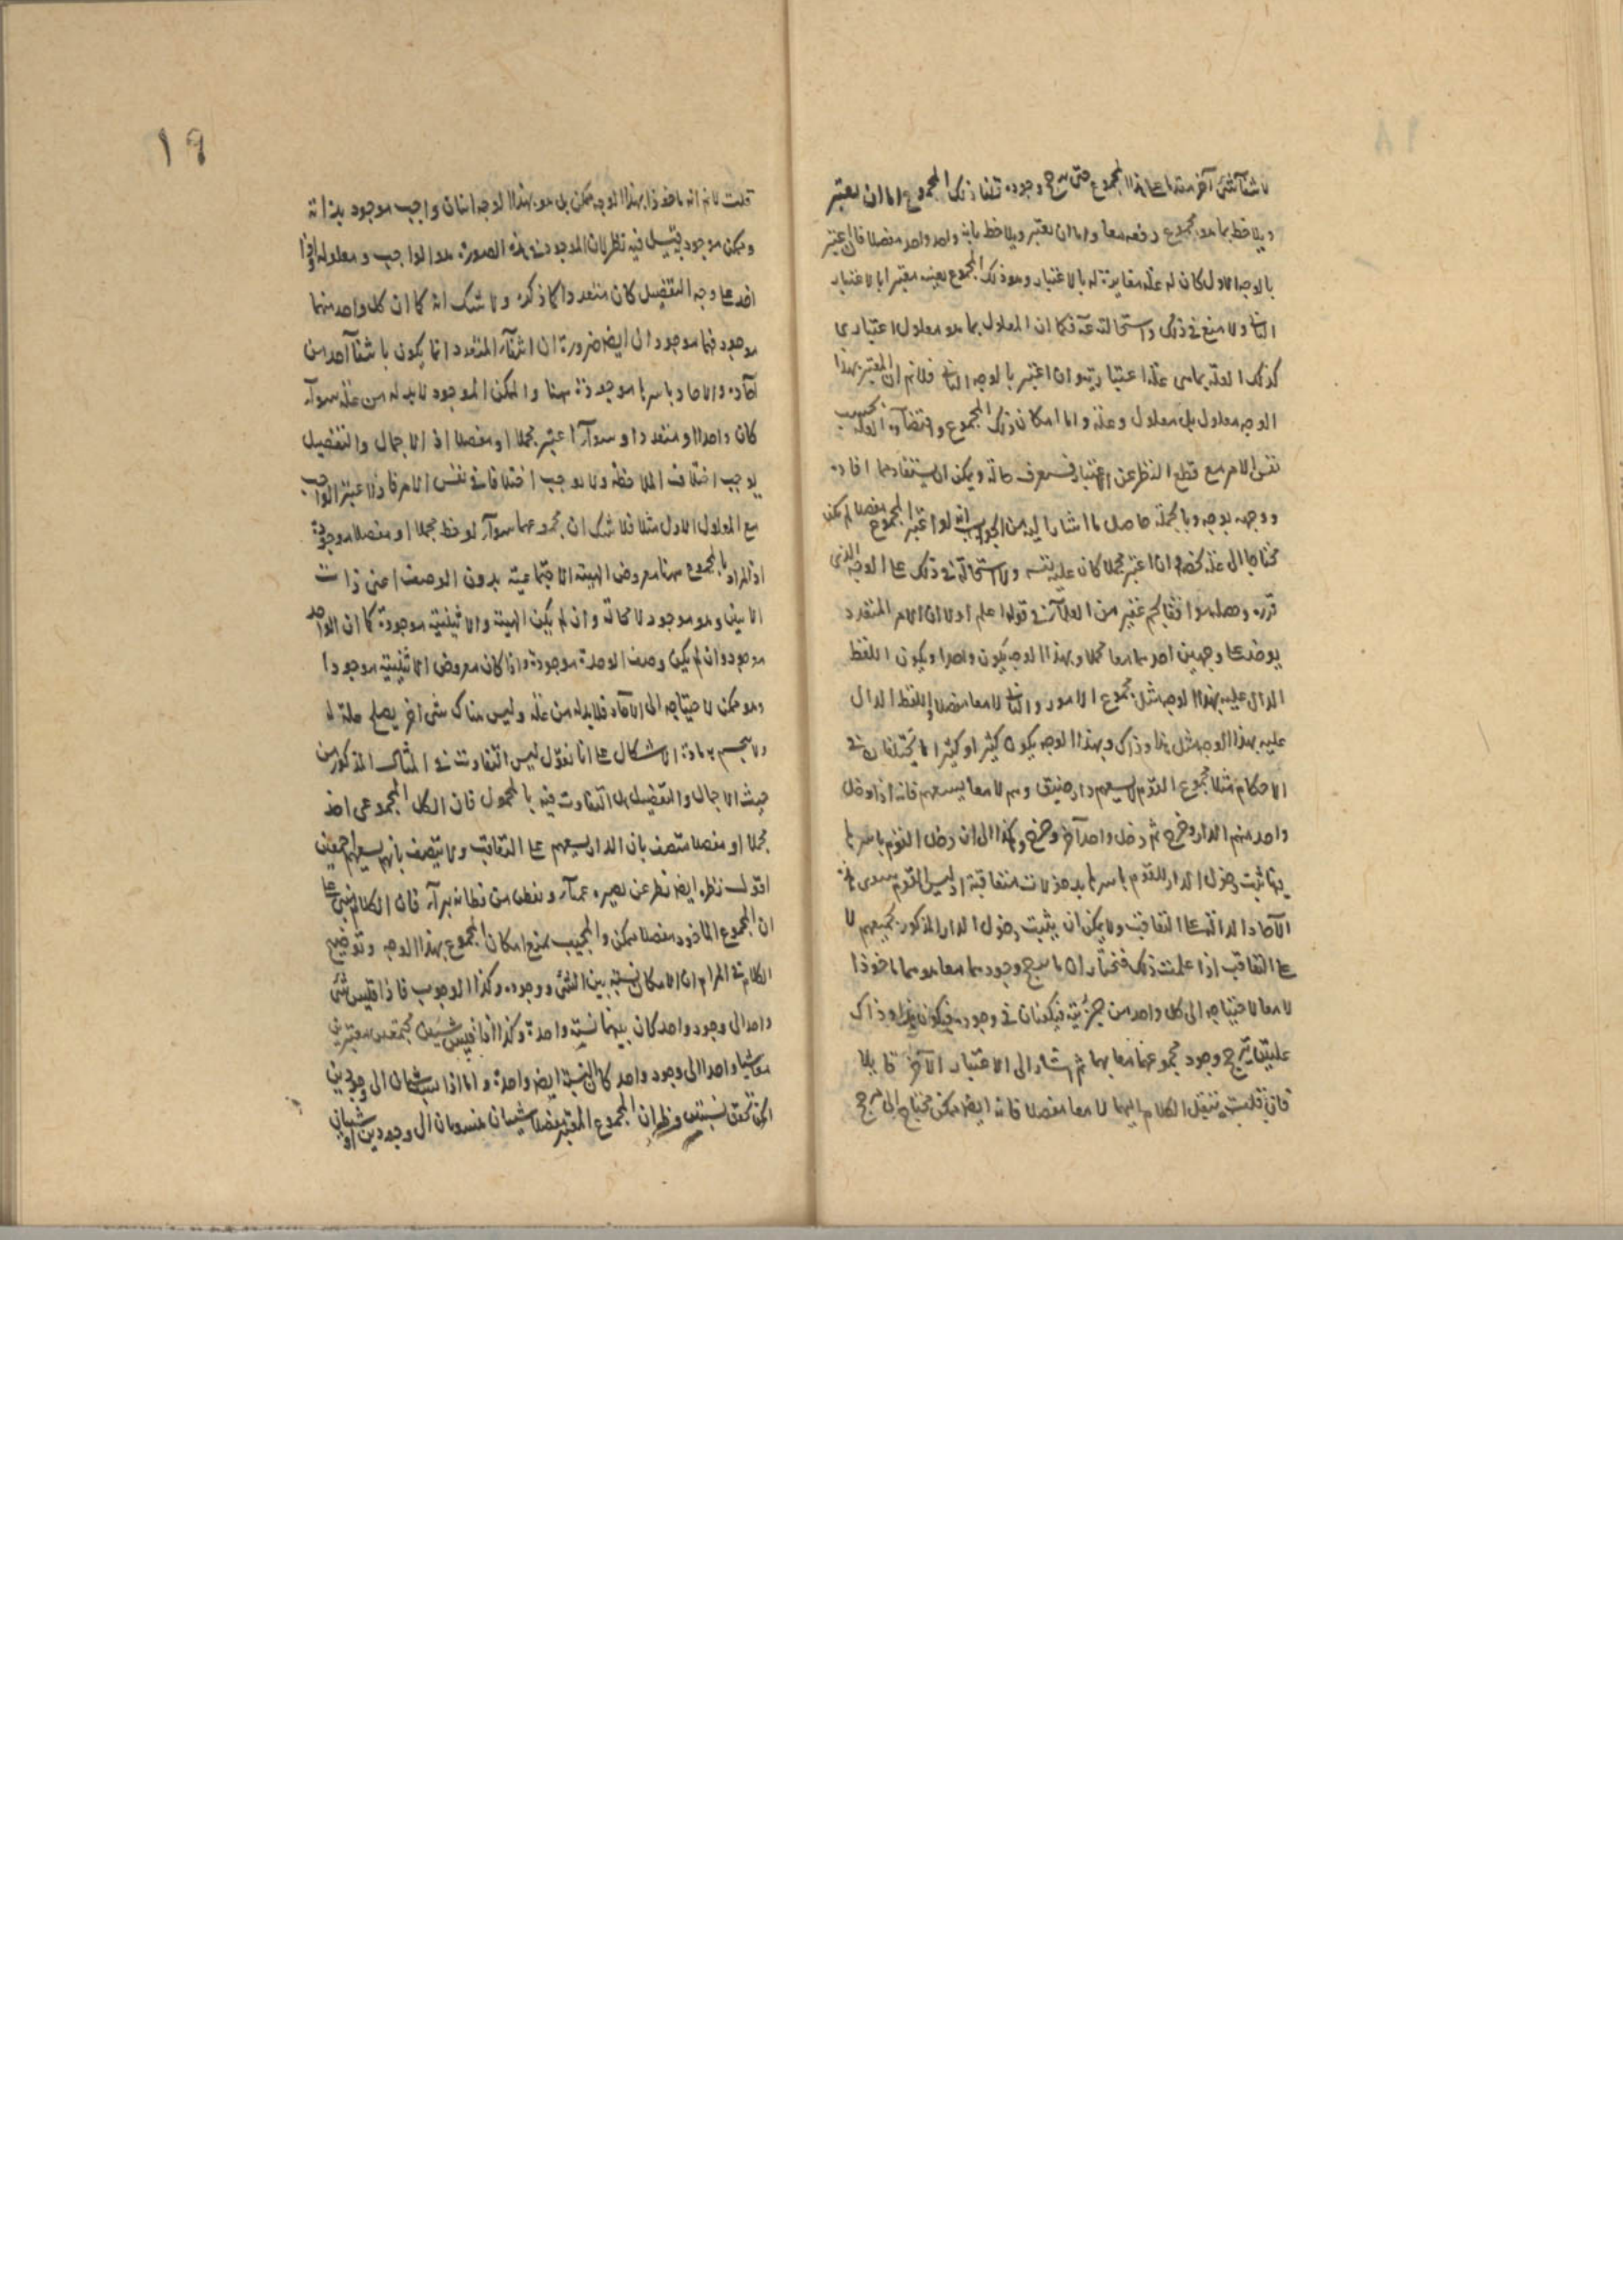 لا شيء آخر متقدما على هذا المجموع حتى يترجح وجوده قلنا ذلك المجموع اما ان يعتبر
ويلاحظ بما هو مجموع دفعة معا واما ان يعتبر ويلاحظ بانه واحد واحد مفصلا فان اعتبر
بالوجه الاول كان له علة مغايرة له بالاعتبار وهو ذلك المجموع بعينه معتبرا بالاعتبار
الثاني ولا منع في ذلك واستحالته فكما ان المعلول بما هو معلول اعتباري
كذلك العلة بما هي علة اعتبارية وان اعتبر بالوجه الثاني فلانم ان المعتبر بهذا
الوجه معلول بل معلول وعلة واما امكان ذلك المجموع واقتضاؤه العلة بحسب
نفس الامر مع قطع النظر عن الاعتبار فستعرف حاله ويمكن ان يستفاد مما افاده
ووجهه بوجه وبالجملة حاصل ما اشار اليه من الجواب انه لو اعتبر المجموع مفصلا لم يكن
محتاجا الى علة تخصه وان اعتبر مجملا كان علته نفسه ولا استحالة في ذلك على الوجه الذي
قرره وجعله موافقا لجم غفير من العلماء في قوله اعلم اولا ان الامر المتعدد
يوخذ على وجهين احدهما معا مجملا وبهذا الوجه يكون واحدا ويكون اللفظ
الدال عليه بهذا الوجه مثل مجموع الامور والثاني لا معا مفصلا واللفظ الدال
عليه بهذا الوجه مثل هذا وذاك وبهذا الوجه يكون كثيرا وكثيرا ما يختلفان في
الاحكام مثلا مجموع القوم لا يسعهم دار ضيق وهم لا معا يسعهم فانه اذا دخل
واحد منهم الدار وخرج ثم دخل واحد آخر وخرج وهكذا الى ان دخل القوم باسرها
فيها ثبت دخول الدار للقوم باسرها بدخولات متعاقبة اذ ليس القوم سوى هذه
الآحاد الداخلة على التعاقب ولا يمكن ان يثبت دخول الدار المذكور بجميعهم لا
على التعاقب اذا علمت ذلك فنختار ان ما يترجح وجودهما معا هو هما ماخوذا
لا معا لاحتياجه الى كل واحد من جزئيه فيكونان في وجوده فيكون هذا وذاك
علتين يترجح وجود مجموعهما معا بهما ثم اشار الى الاعتبار الآخر قايلا
فان قلت ننقل الكلام اليهما لا معا مفصلا فانه ايضا ممكن محتاج الى مرجح
١٩
قلت لانم انه ماخوذا بهذا الوجه ممكن بل هو بهذا الوجه اثنان واجب موجود بذاته
وممكن موجود به قيل فيه نظر لان الموجود في هذه الصورة هو الواجب ومعلوله واذا
اخذ على وجه التفصيل كان متعددا كما ذكره ولا شك انه كما ان كل واحد منهما
موجود فهما موجودان ايضا ضرورة ان انتفاء المتعدد انما يكون بانتفاء احد من
آحاده والاحاد باسرها موجودة ههنا والممكن الموجود لا بد له من علة سواء
كان واحدا او متعددا وسواء اعتبر مجملا او مفصلا اذ الاجمال والتفصيل
يوجب اختلاف الملاحظة ولا يوجب اختلافا في نفس الامر فاذا اعتبر الواجب
مع المعلول الاول مثلا فلا شك ان مجموعهما سواء لوحظ مجملا او مفصلا موجود
اذ المراد بالمجموع ههنا معروض الهيئة الاجتماعية بدون الوصف اعنى ذات
الاثنين وهو موجود لا محالة وان لم يكن الهيئة والاثنينية موجودة كما ان الواحد
موجود وان لم يكن وصف الوحدة موجودة واذا كان معروض الاثنينية موجودا
وهو ممكن لاحتياجه الى الآحاد فلا بد له من علة وليس هناك شيء آخر يصلح علة له
ولا ينحسم مادة الاشكال على انا نقول ليس التفاوت في المثال المذكور من
حيث الاجمال والتفصيل بل التفاوت فيه بالمحمول فان الكل المجموعى اخذ
مجملا او مفصلا متصف بان الدار يسعهم على التعاقب ولا يتصف بانه يسعهم مجتمعين
اقول نظره ايضا نظر عن بصيرة عمياء وفطن من فطانة براء فان الكلام مبنى على
ان المجموع الماخوذ مفصلا ممكن والمجيب يمنع امكان المجموع بهذا الوجه وتوضيح
الكلام في المرام ان الامكان نسبة بين الشيء ووجوده وكذا الوجوب فاذا قيس شيء
واحد الى وجود واحد كان بينهما نسبة واحدة وكذا اذا قيس شيئين مجتمعين معتبرين
معا شيا واحدا الى وجود واحد كان النسبة ايضا واحدة واما اذا نسب شيئان الى وجودين
لكن تحقق نسبتين وظهر ان المجموع المعتبر مفصلا شيئان منسوبان الى وجودين